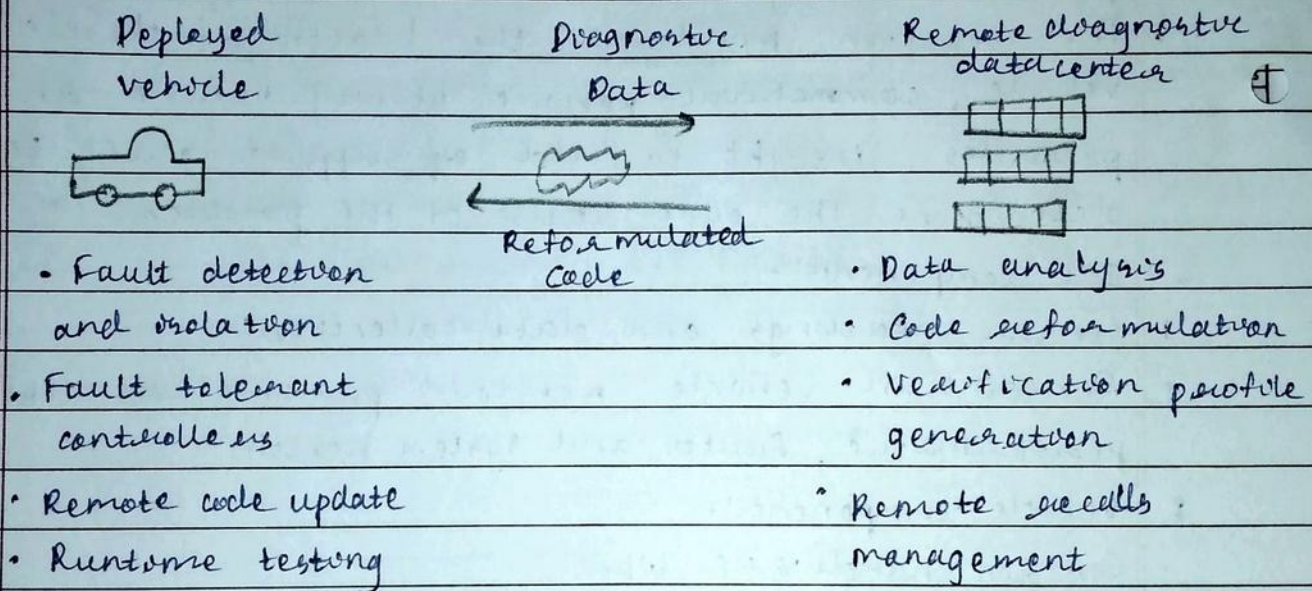 Deployed
vehicle
Diagnostic
Data
Remote diagnostic
datacenter
Reformulated
Code
• Fault detection
and isolation
• Fault tolerant
controllers
• Remote code update
• Runtime testing
• Data analysis
• Code reformulation
• Verification profile
generation
• Remote recalls
management